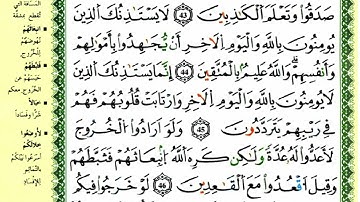 صَدَقُوا۟ وَتَعْلَمَ ٱلْكَـٰذِبِينَ 43 لَا يَسْتَـْٔذِنُكَ ٱلَّذِينَ
يُؤْمِنُونَ بِٱللَّهِ وَٱلْيَوْمِ ٱلْـَٔاخِرِ أَن يُجَـٰهِدُوا۟ بِأَمْوَٰلِهِمْ
وَأَنفُسِهِمْ ۗ وَٱللَّهُ عَلِيمٌۢ بِٱلْمُتَّقِينَ 44 إِنَّمَا يَسْتَـْٔذِنُكَ ٱلَّذِينَ
لَا يُؤْمِنُونَ بِٱللَّهِ وَٱلْيَوْمِ ٱلْـَٔاخِرِ وَٱرْتَابَتْ قُلُوبُهُمْ فَهُمْ
فِى رَيْبِهِمْ يَتَرَدَّدُونَ 45 وَلَوْ أَرَادُوا۟ ٱلْخُرُوجَ
لَأَعَدُّوا۟ لَهُۥ عُدَّةً وَلَـٰكِن كَرِهَ ٱللَّهُ ٱنۢبِعَاثَهُمْ فَثَبَّطَهُمْ
وَقِيلَ ٱقْعُدُوا۟ مَعَ ٱلْقَـٰعِدِينَ 46 لَوْ خَرَجُوا۟ فِيكُم
انبعاثهم
فثبطهم
خبالاً
خلالكم